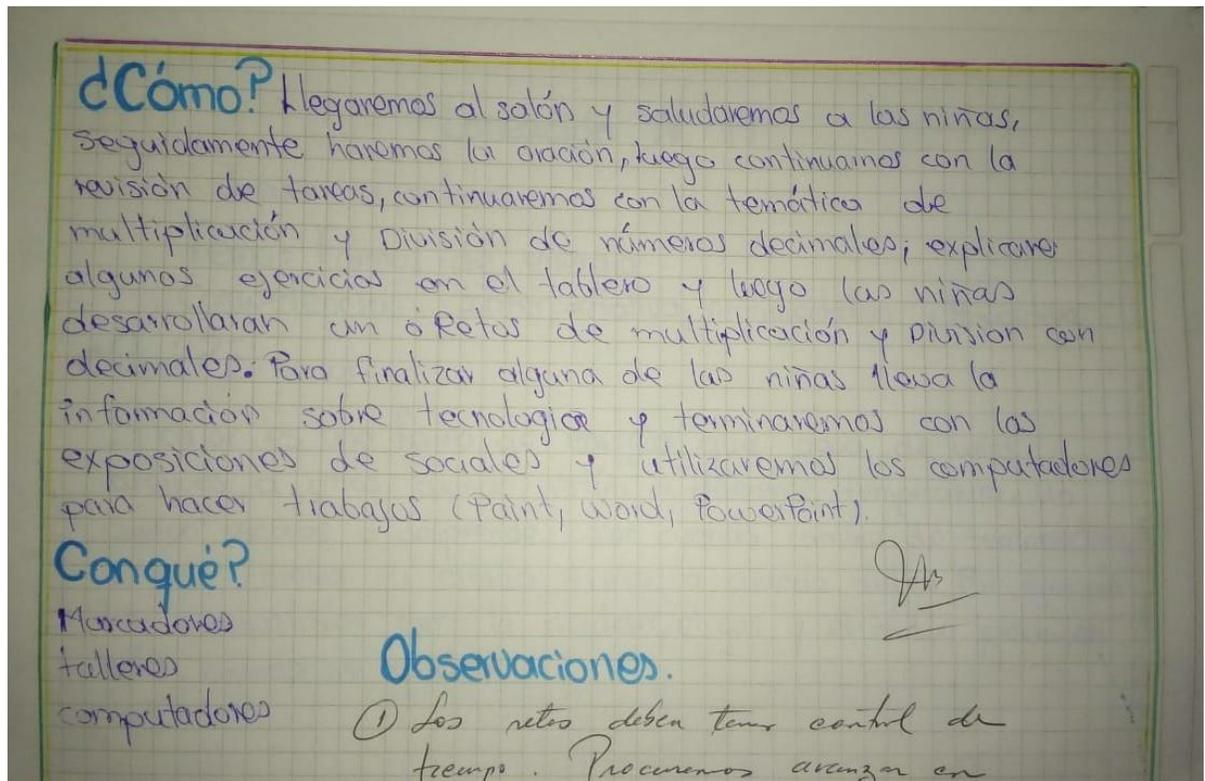 ¿Cómo? Llegaremos al salón y saludaremos a las niñas,
seguidamente haremos la oración, luego continuamos con la
revisión de tareas, continuaremos con la temática de
multiplicación y División de números decimales; explicare
algunos ejercicios en el tablero y luego las niñas
desarrollaran un o Retos de multiplicación y Division con
decimales. Para finalizar alguna de las niñas lleva la
información sobre tecnologica y terminaremos con las
exposiciones de sociales y utilizaremos los computadores
para hacer trabajos (Paint, Word, PowerPoint).
Con qué?
Marcadores
talleres
computadores
Observaciones.
① Los retos deben tener control de
tiempo. Procuremos avanzar en